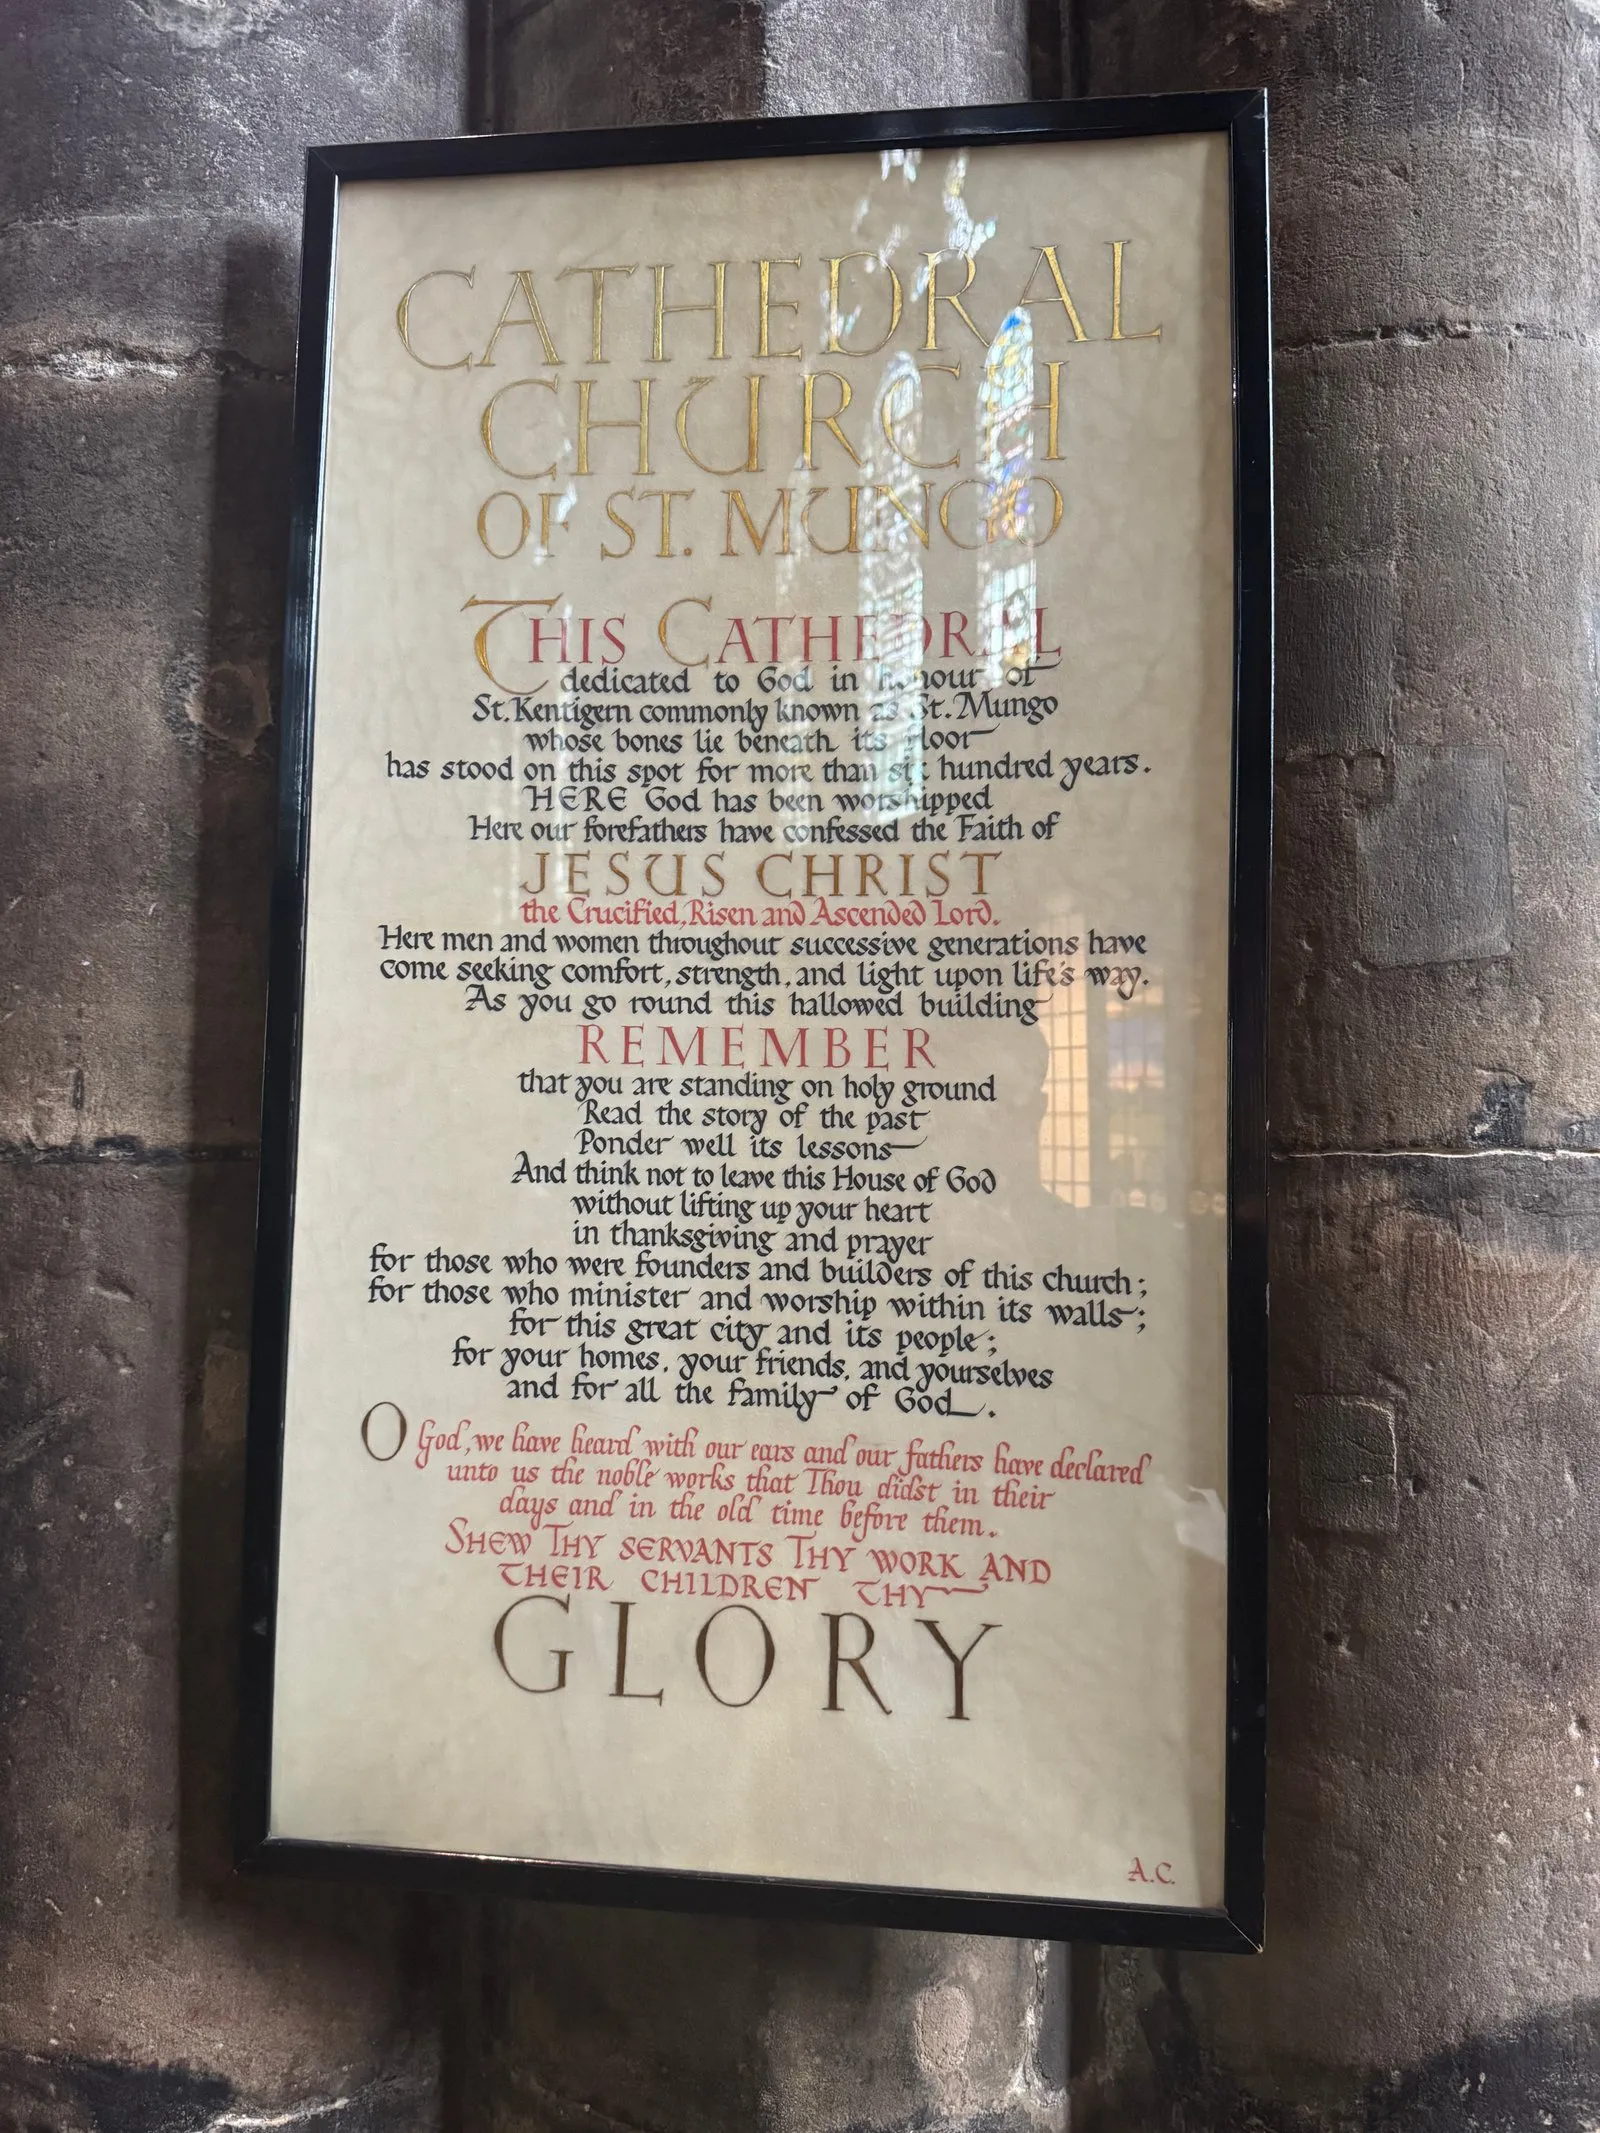 CATHEDRAL
CHURCH
OF ST. MUNGO
THIS CATHEDRAL
dedicated to God in honour of
St. Kentigern commonly known as St. Mungo
whose bones lie beneath its floor
has stood on this spot for more than six hundred years.
HERE God has been worshipped
Here our forefathers have confessed the Faith of
JESUS CHRIST
the Crucified, Risen and Ascended Lord.
Here men and women throughout successive generations have
come seeking comfort, strength, and light upon life's way.
As you go round this hallowed building
REMEMBER
that you are standing on holy ground
Read the story of the past
Ponder well its lessons
And think not to leave this House of God
without lifting up your heart
in thanksgiving and prayer
for those who were founders and builders of this church;
for those who minister and worship within its walls;
for this great city and its people;
for your homes, your friends, and yourselves
and for all the family of God.
O God, we have heard with our ears and our fathers have declared
unto us the noble works that Thou didst in their
days and in the old time before them.
SHEW THY SERVANTS THY WORK AND
THEIR CHILDREN THY
GLORY
A.C.